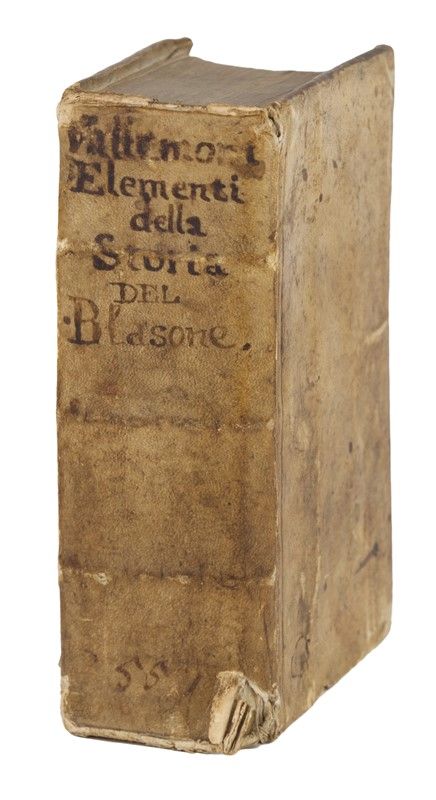 Vallemont
Elementi
della
Storia
DEL
Blasone.
557